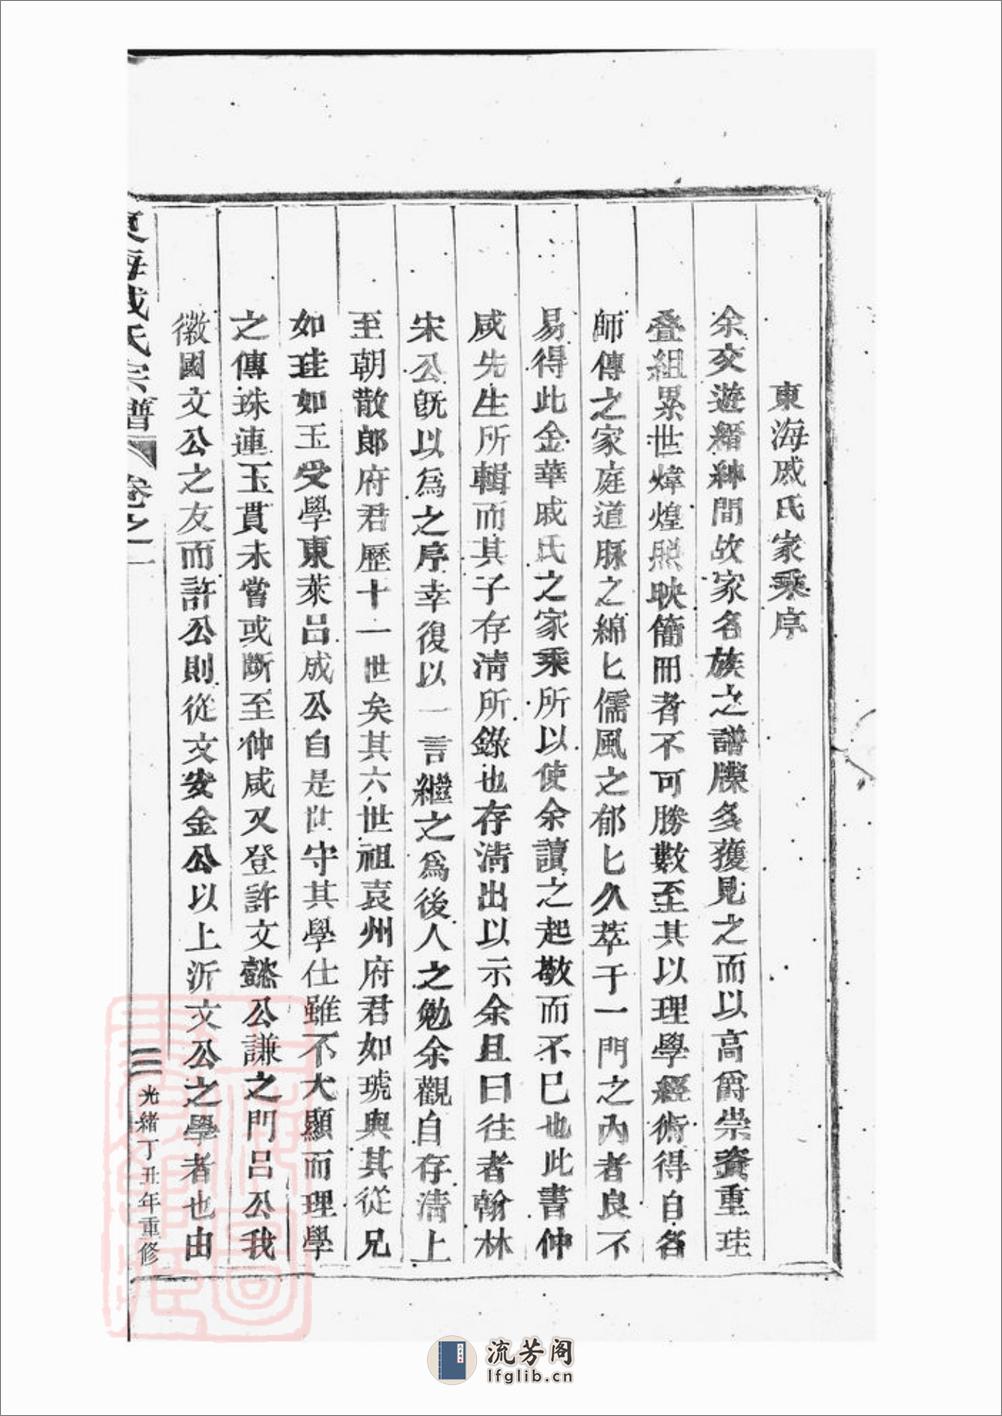 東海戚氏家乘序
余交遊縉紳間故家名族之譜牒多獲見之而以高爵崇資重珪
叠組累世煒煌照映簡冊者不可勝數至其以理學經術得自名
師傳之家庭道脉之綿匕儒風之郁匕久萃于一門之內者良不
易得此金華戚氏之家乘所以使余讀之起敬而不已也此書仲
咸先生所輯而其子存淸所錄也存淸出以示余且曰往者翰林
宋公旣以為之序幸復以一言繼之爲後人之勉余觀自存淸上
至朝散郎府君歷十一世矣其六世祖袁州府君如琥與其從兄
如珪如玉受學東萊呂成公自是世守其學仕雖不大顯而理學
之傳珠連玉貫未嘗或斷至仲咸又登許文懿公謙之門呂公我
徽國文公之友而許公則從文安金公以上泝文公之學者也由
東海戚氏宗譜 卷之一
三 光緒丁丑年重修
流芳阁
lfglib.cn